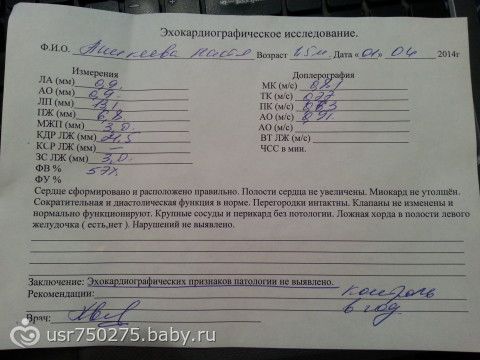 Эхокардиографическое исследование.
Ф.И.О. Настя Возраст 1,5 м. Дата «01» 04 2014г
Измерения
ЛА (мм) 0,9
АО (мм) 0,9
ЛП (мм) 13,1
ПЖ (мм) 6,8
МЖП (мм) 3,0
КДР ЛЖ (мм) 24,5
КСР ЛЖ (мм) —
ЗС ЛЖ (мм) 3,0
ФВ %
ФУ %
Доплерография
МК (м/с) 0,81
ТК (м/с) 0,77
ПК (м/с) 0,83
АО (м/с) 0,91
АО (м/с)
ВТ ЛЖ (м/с)
ЧСС в мин.
Сердце сформировано и расположено правильно. Полости сердца не увеличены. Миокард не утолщён.
Сократительная и диастолическая функция в норме. Перегородки интактны. Клапаны не изменены и
нормально функционируют. Крупные сосуды и перикард без потологии. Ложная хорда в полости левого
желудочка ( есть,нет ). Нарушений не выявлено.
Заключение: Эхокардиографических признаков патологии не выявлено.
Рекомендации: контроль
в год.
Врач:
usr750275.baby.ru